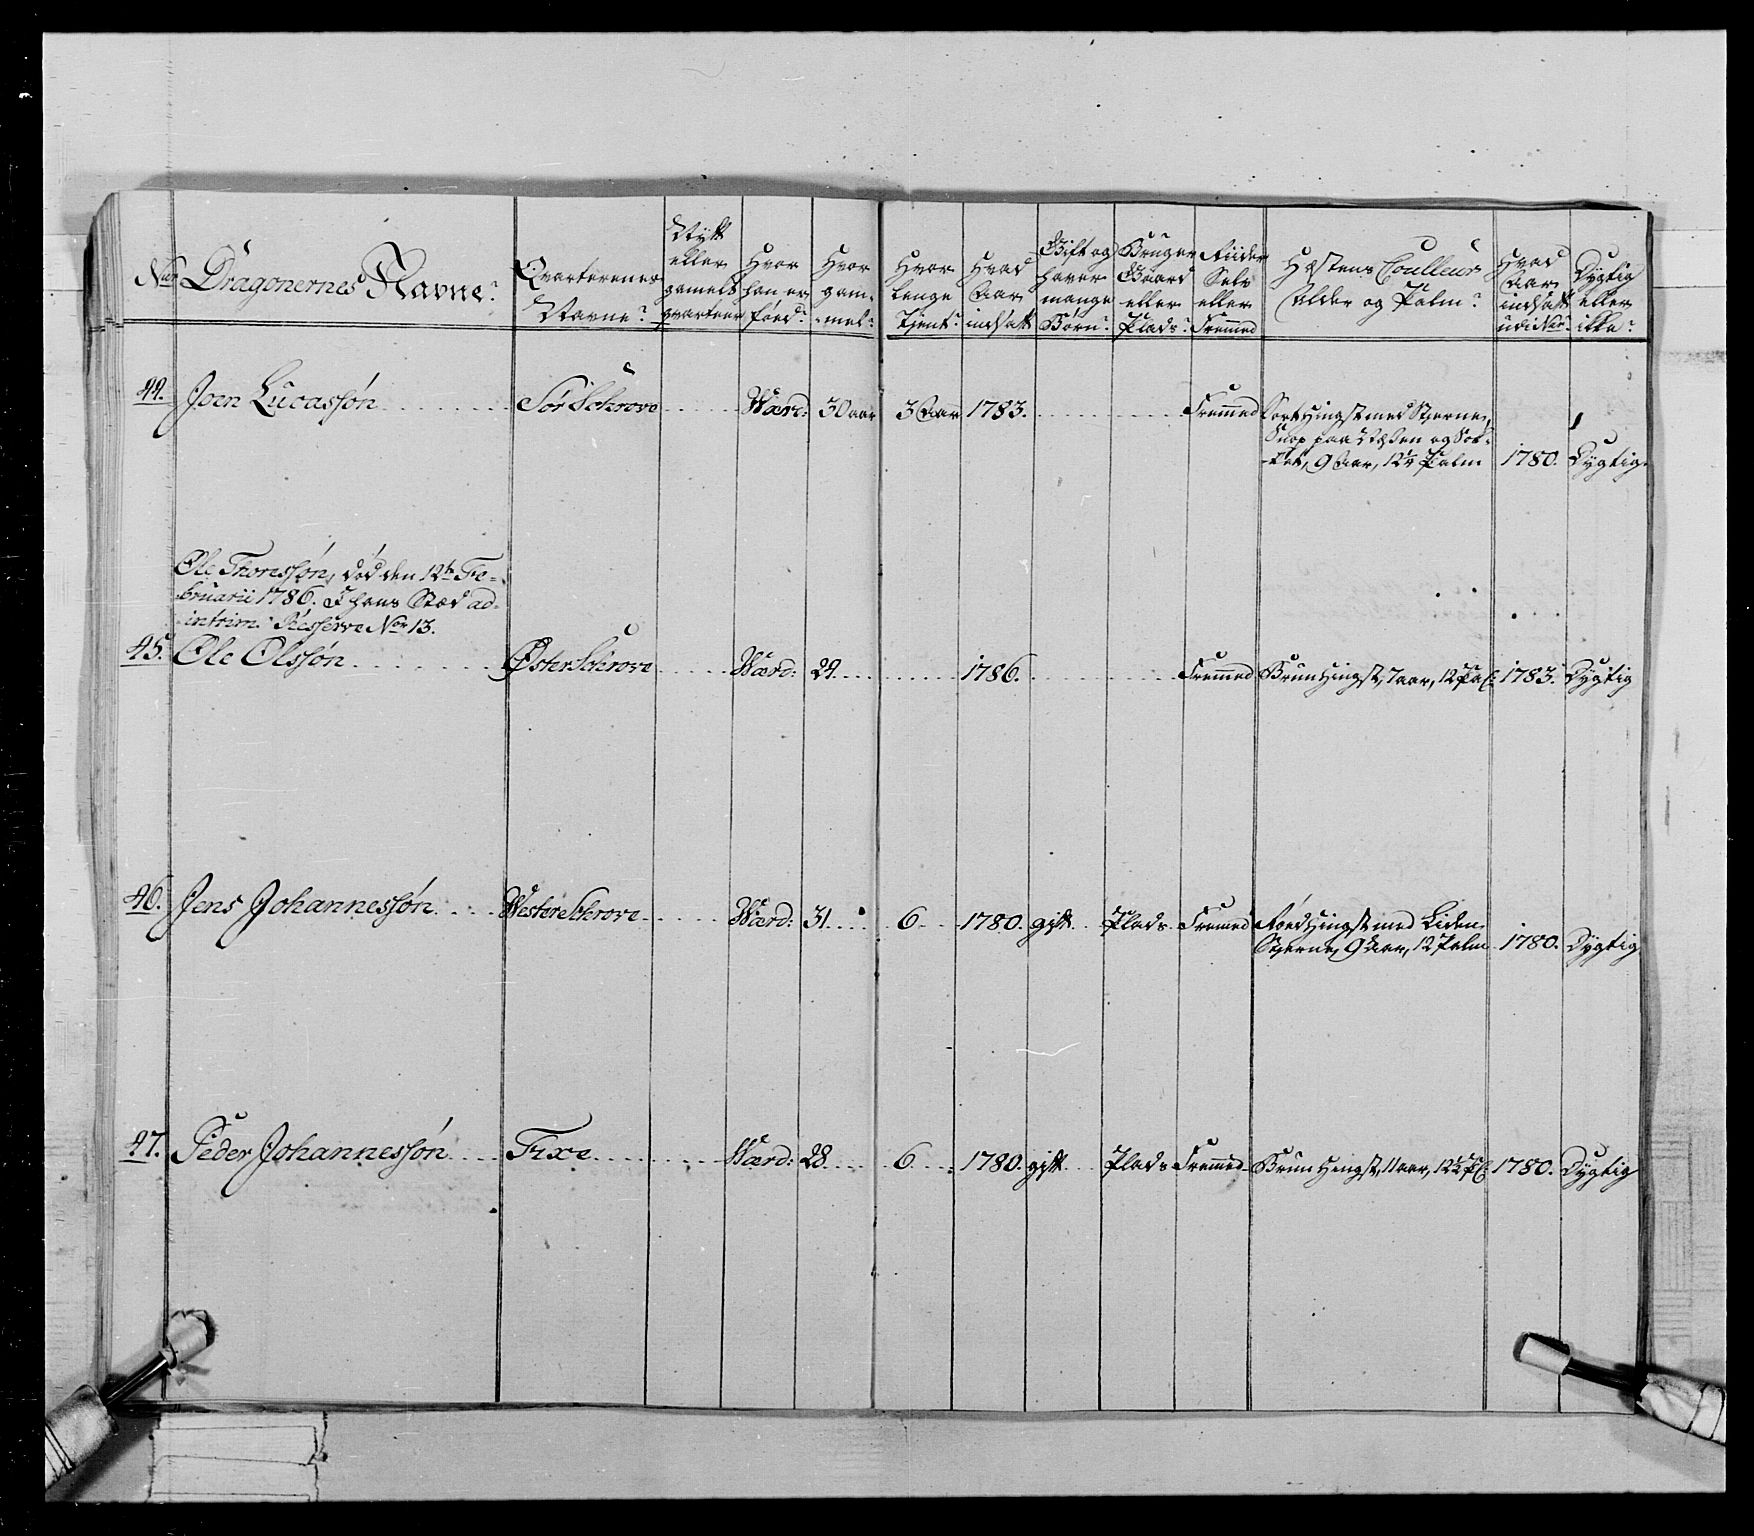 Nor Dragonernes Navne? Qvarterenes Navne? Nytt eller gamelt qvarteer Hvor han er föed? Hvor gam- -mel? Hvor lenge Tjent? Hvad Aar indsatt Gift og haver mange Börn? Bruger Gaard eller Plads? Riider Selv eller Fremmed Hæstens Coulleur Alder og Palm? Hvad Aar indsatt udi Nor? Dygtig eller ikke?
44. Joen Lucassön Sör Schrove Værd: 30 aar 3 Aar 1783. Fremmed Sort Hingst med Stjerne,
Snop paa Næsen og Sok-
-ket, 9 Aar, 12 1/4 Palm 1780. Dygtig.
Ole Thoressön, död den 12te Fe-
-bruarii 1786. I hans Stæd ad-
-intrim Resserve Nor 13.
45. Ole Olssön Öster Schrove Værd: 24. 1786. Fremmed Bruun Hingst, 7 aar, 12 Pal: 1783. Dygtig
46. Jens Johannessön Westere Schrove Værd: 31. 6 1780. gift Plads Fremmed Röed Hingst med Liden
Stjerne, 9 Aar, 12 Palm 1780. Dygtig
47. Peder Johannessön Fixe Værd: 28 6 1780. gift Plads Fremmed Bruun Hengst, 11 aar, 12 1/2 Pl: 1780. Dygtig